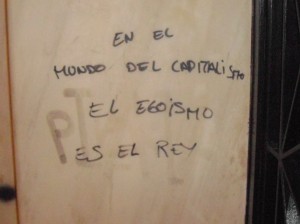 EN EL
MUNDO DEL CAPITALISMO
EL EGOISMO
ES EL REY